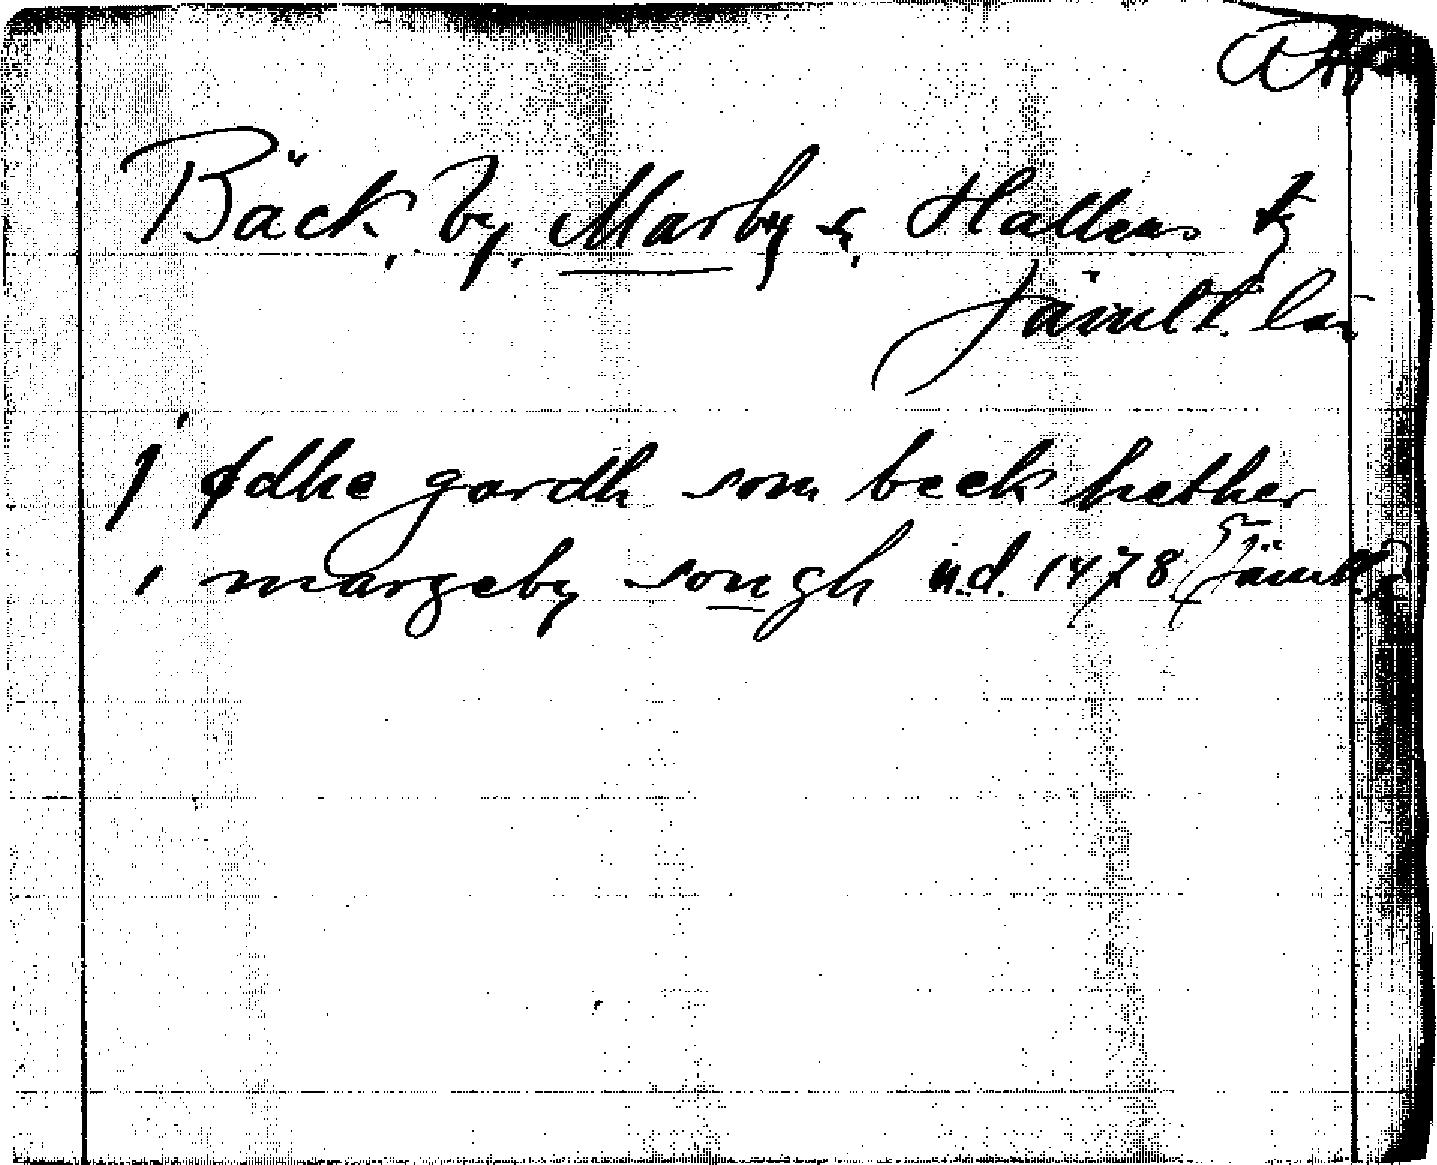 Bäck, by, Marby s, Hallens tg
Jämtl. län
J ødhe gardh som beck hether
i margeby songh u.d. 1478